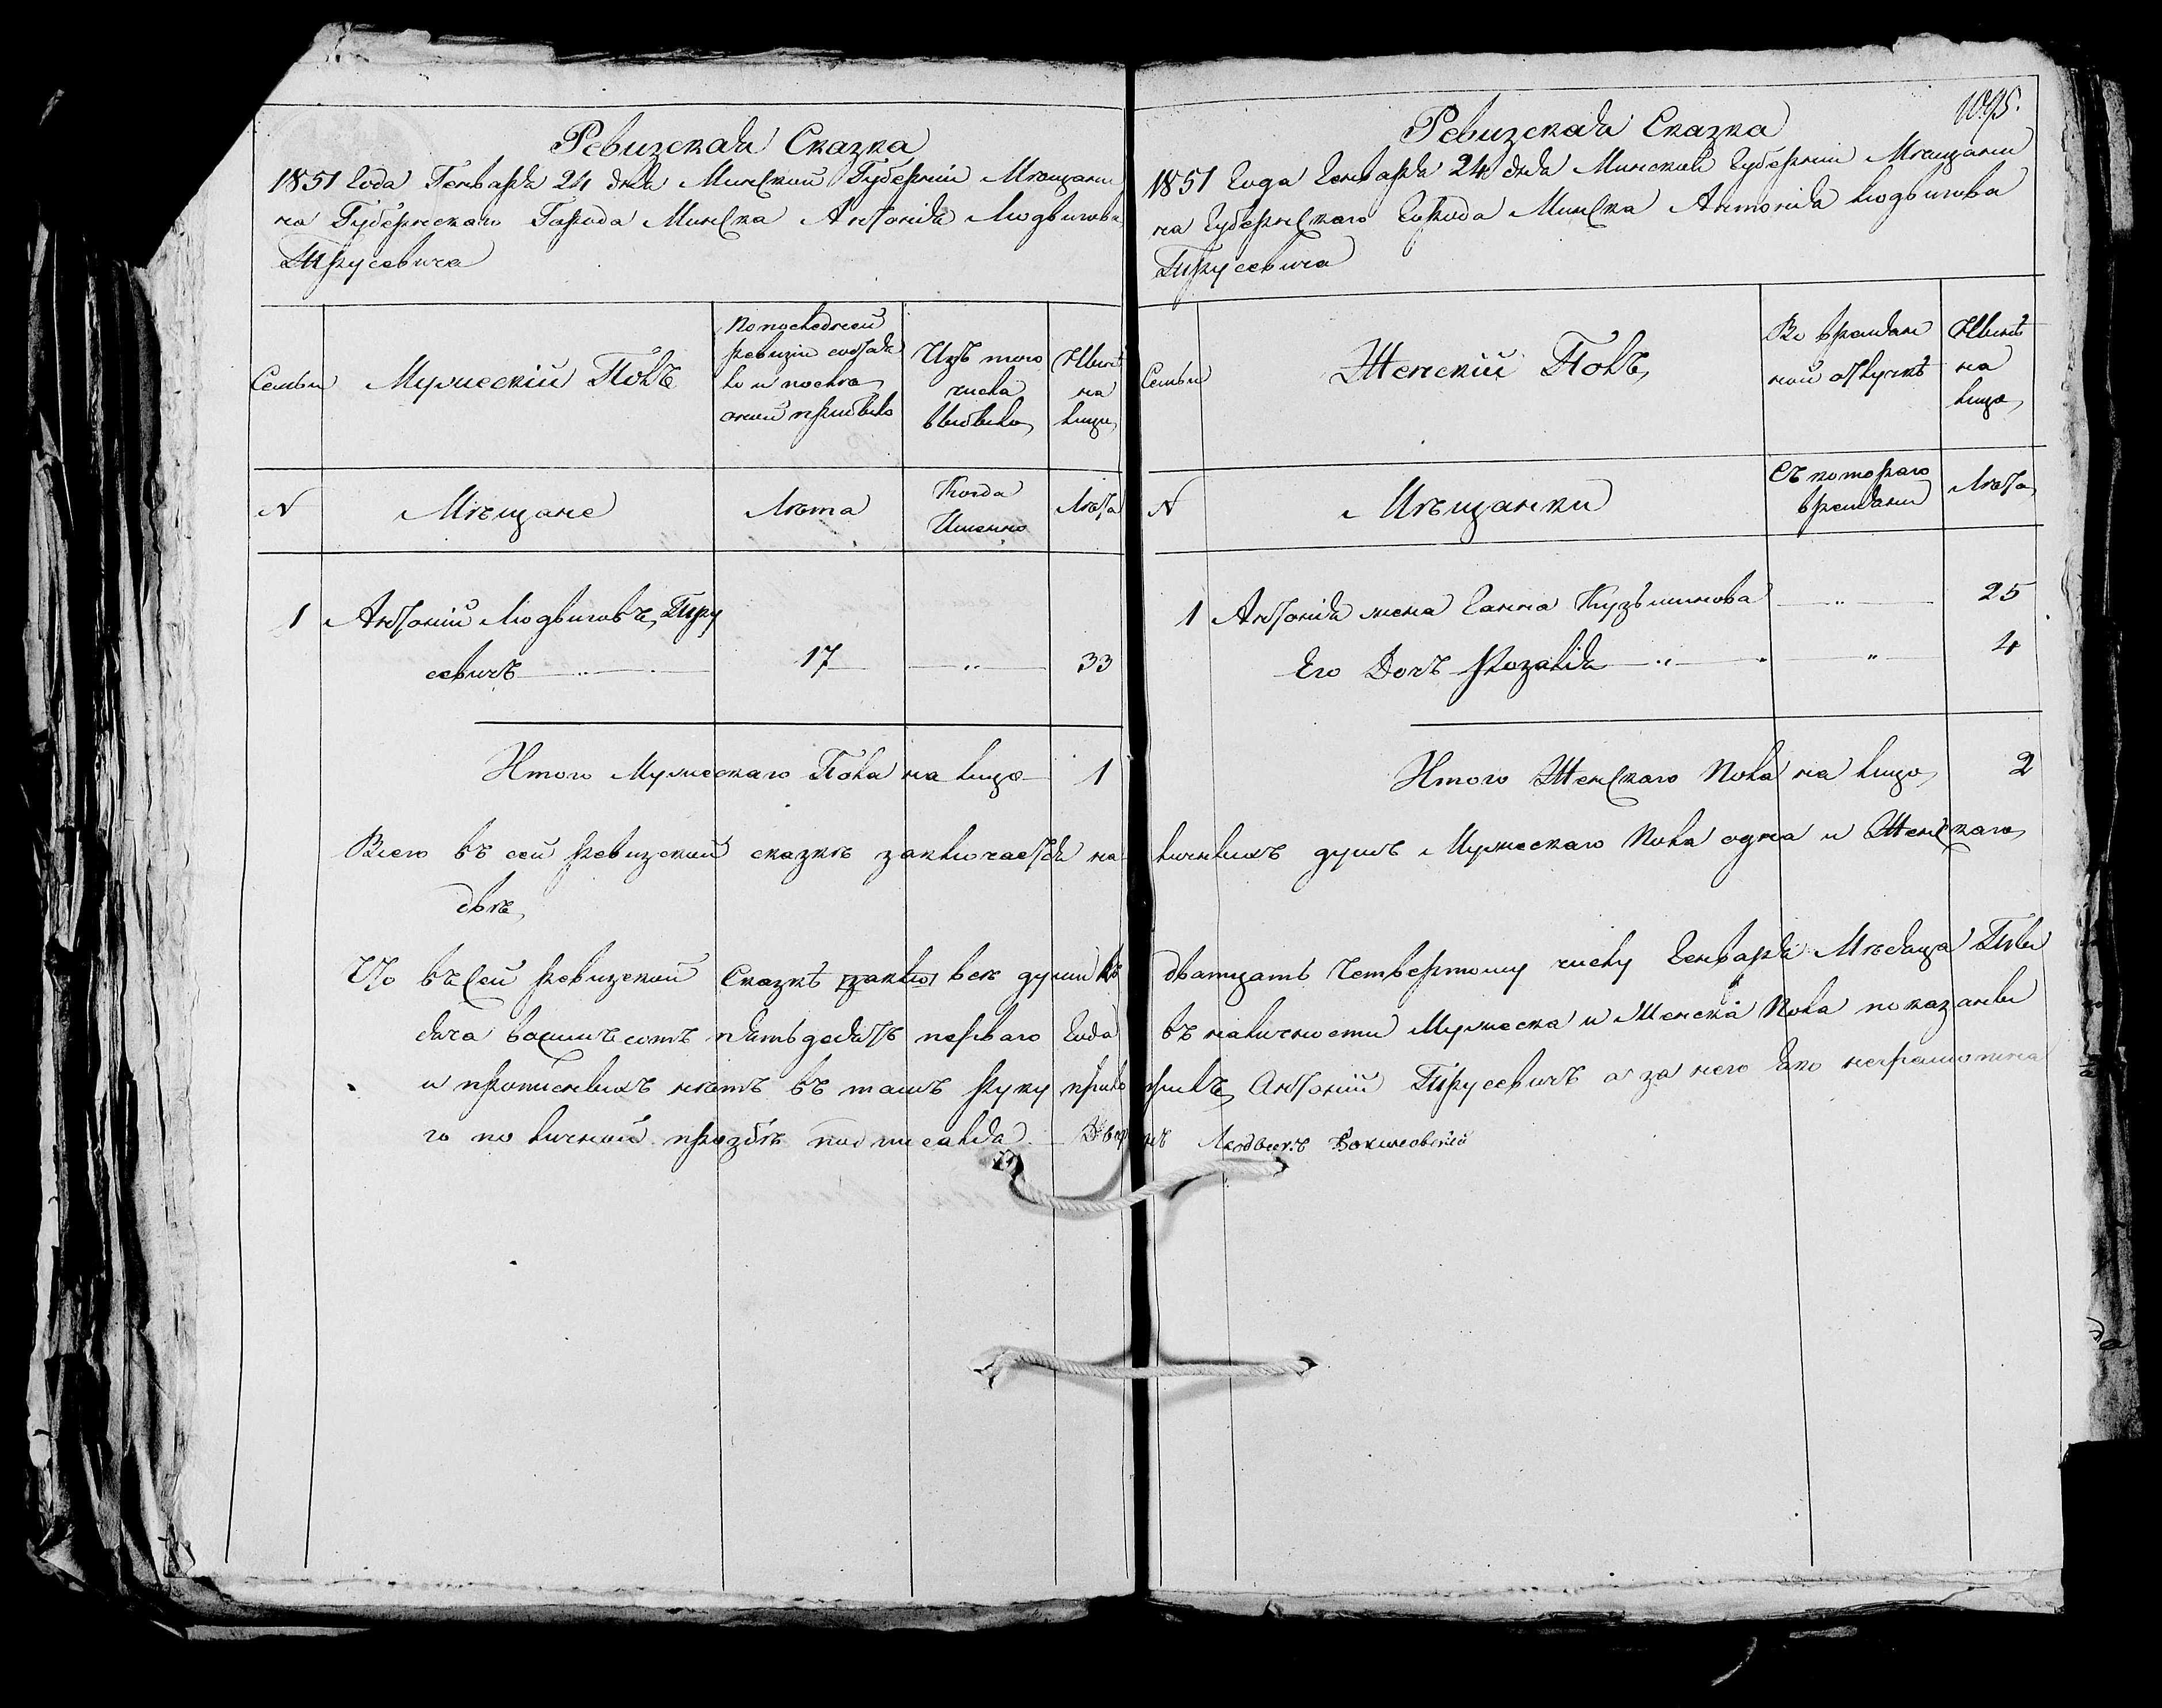 Ревизская Сказка
1851 Года Генваря 24 дня Минской Губерніи Мѣщани
на Губернскаго Города Минска Антонія Людвигова
Трусевича
Семьи
Мужескій Полъ
По последней
ревизіи состоя
ло и после
оной прибыло
Изъ того
числа
выбыло
Нынѣ
на
лицо
N
Мѣщане
Лѣта
Когда
Именно
Лѣта
1 Антоній Людвиговъ Тру
севичъ 17 " 33
Итого Мужескаго Пола на лицо 1
1095.
Ревизская Сказка
1851 Года Генваря 24 дня Минской Губерніи Мѣщани
на Губернскаго Города Минска Антонія Людвигова
Трусевича
Семьи
Женскій Полъ
Во времян
ной отлучкѣ
Нынѣ
на
лицо
N
Мѣщанки
Съ котораго
времяни
Лѣта
1 Антонія жена Ганна Кузьминова " 25
Его Дочъ Розалія " " 4
Итого Женскаго Пола на лицо 2
Всего въ сей ревизской сказкѣ заключается на личныхъ душъ Мужескаго Пола одна и Женскаго
двѣ
Что въ Сей ревизской Сказкѣ заклю все души къ дватцать Четвертому числу Генваря Мѣсяца Тысы
сяча восимъ сотъ пятьдесятъ перваго Года въ наличности Мужеска и Женска Пола показаны
и прописныхъ нѣтъ въ томъ руку прило жилъ Антоній Трусевичъ а за него Яко неграмотна
го по личной прозбѣ подписался Дворянъ Людвигъ